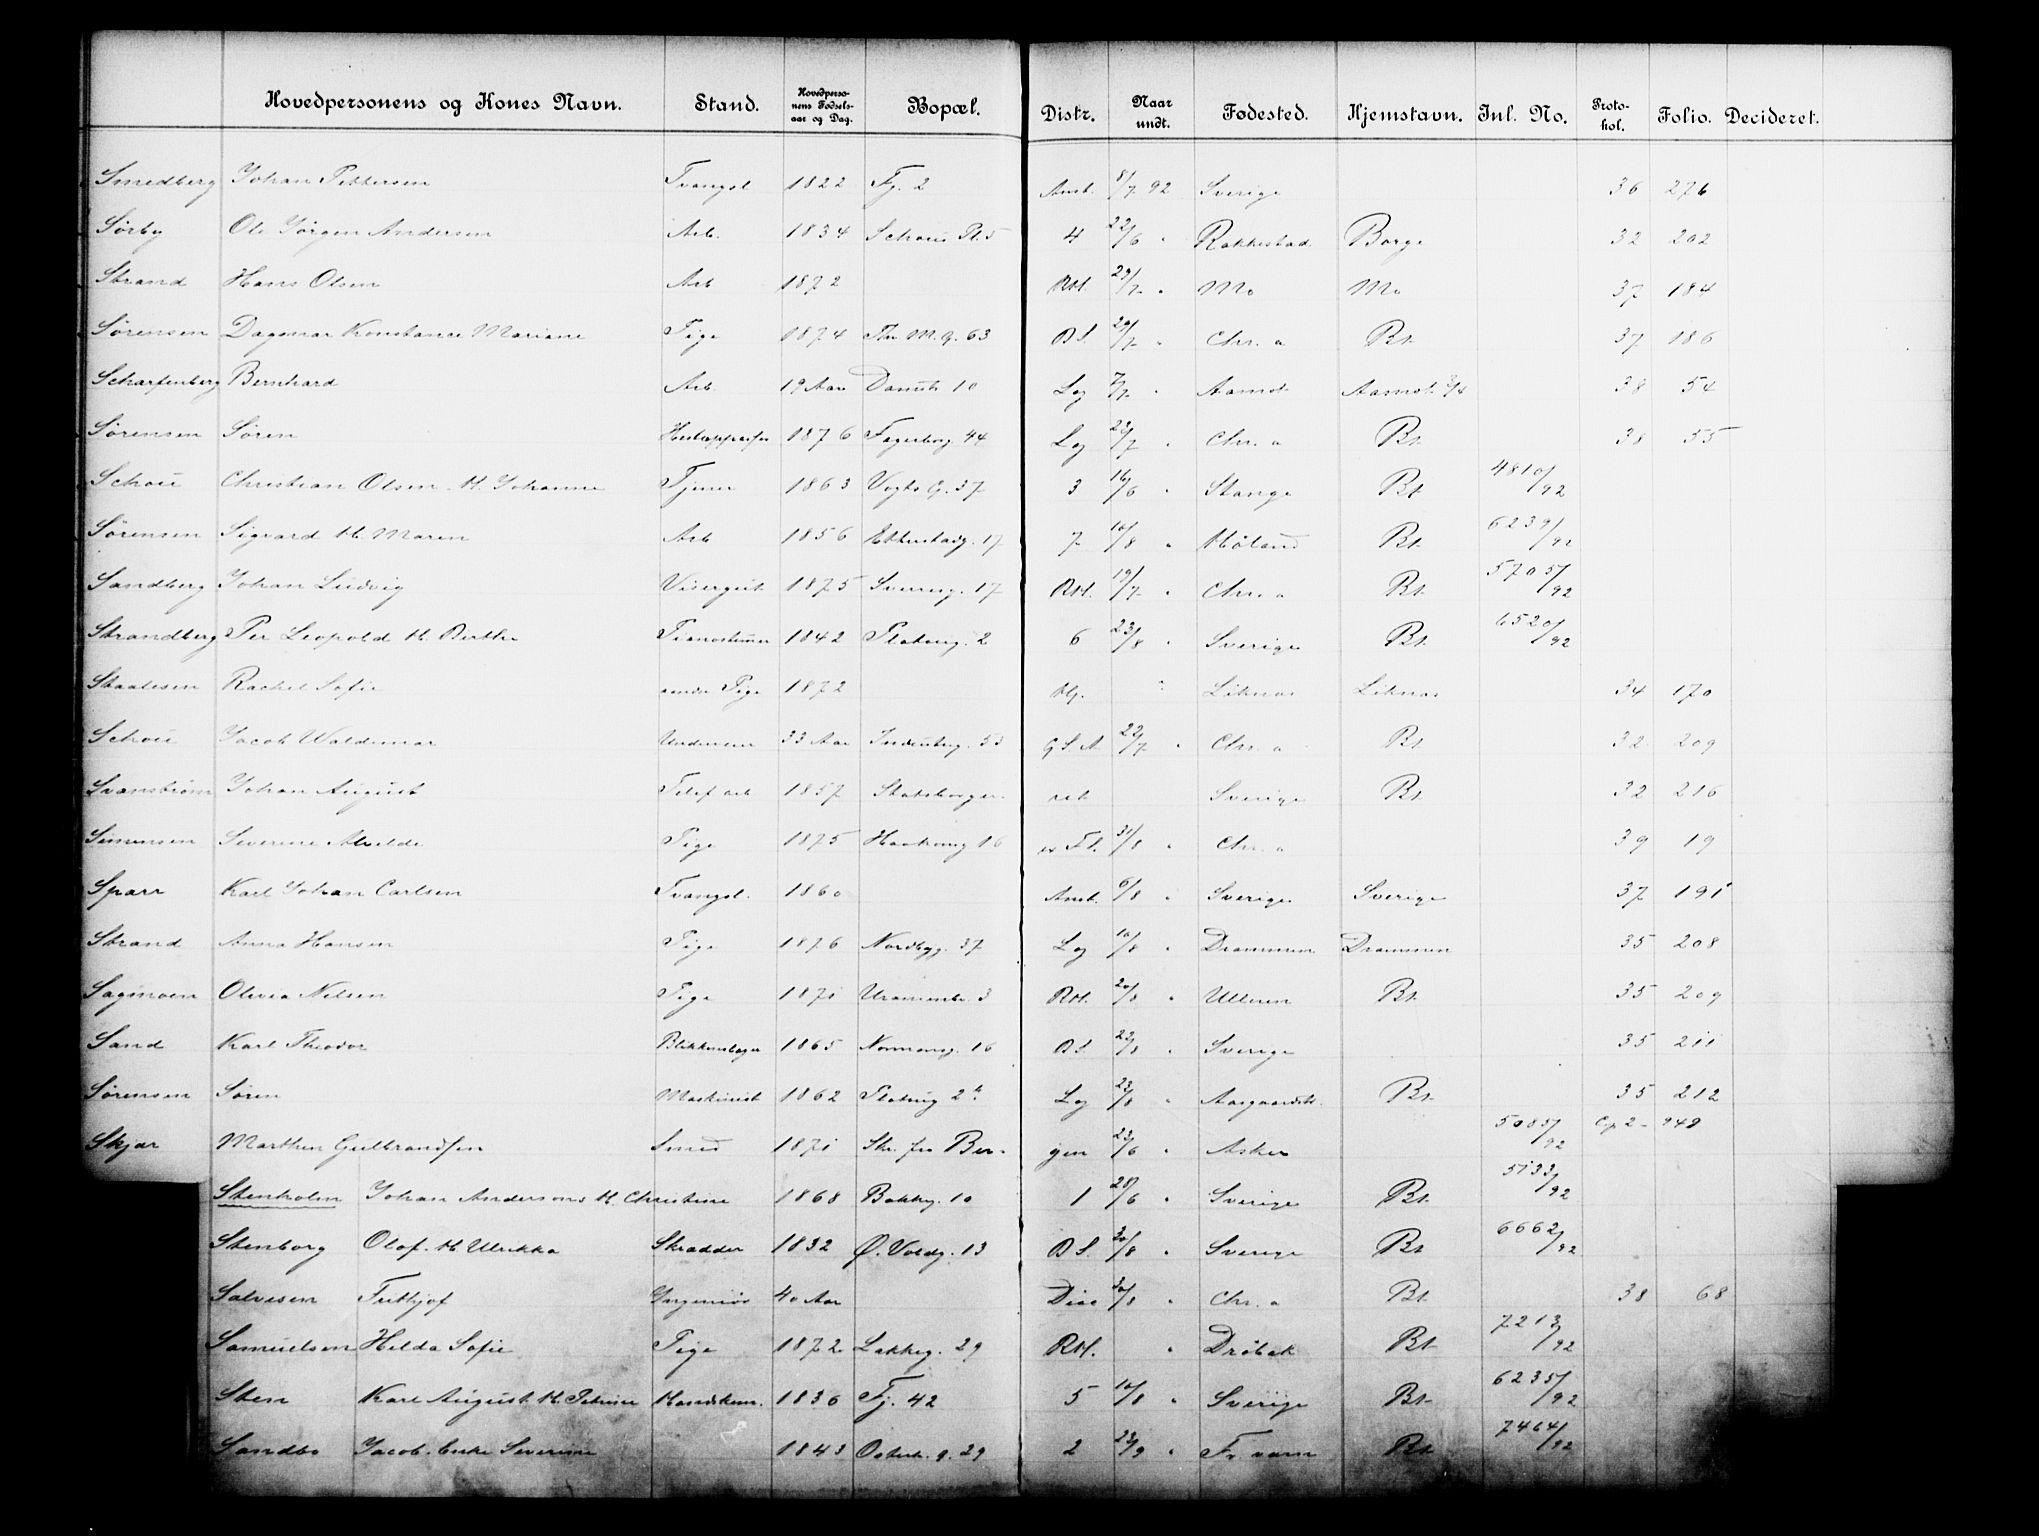 Hovedpersonens og Kones Navn. Stand. Hovedpersonens Fødselsaar og Dag. Bopæl. Distr. Naar undt. Fødested. Hjemstavn. Inl. No. Protokol. Folio. Decideret.
Smedberg Johan Pettersen Tvangsl 1822 Fj. 2 Anst. 8/7 92 Sverige 36 276
Sørby Ole Jørgen Andersen Arb. 1834 Schous Pl. 5 4 22/6 " Rakkestad Borge 32 202
Strand Hans Olsen Arb 1872 RH. 29/7 " Mo Mo 37 184
Sørensen Dagmar Konstance Mariane Pige 1874 Thv M. g. 63 B S. 29/7 " Chr. a Bt. 37 186
Scharfenberg Bernhard Arb. 19 Aar 10 Lag 7/7 " Aamot Aamot 3/4 38 54
Sørensen Søren 1876 Fagerborg. 44 Lag 22/7 " Chr. a Bt. 38 55
Schou Christian Olsen H. Johanne Tjener 1863 Vogts G. 37 3 16/6 " Stange Bt 4810/92
Sørensen Sigvard H. Maren Arb 1856 Ekkestadg. 17 7 10/8 " Høland Bt. 6239/92
Sandberg Johan Ludvig Visergut 1875 Sverresg. 17 RH. 19/7 " Chr. a Bt. 5705/92
Strandberg Per Leopold H. Berthe Pianostemer 1842 Platoug. 2 6 23/8 " Sverige Bt. 6520/92
Staalesen Rachel Sofie Pige 1872 Hj. " Liknes Liknes 34 170
Schou Jacob Waldemar 33 Aar Industrig. 53 G S. A. 22/7 " Chr. a Bt 32 209
Svanstrøm Johan August Telef arb 1857 Statsborger. ret Sverige Bt. 32 216
Simensen Severine Alvilde Pige 1875 Haakonsg 16 Fl. 31/8 " Chr. a 39 19
Sparr Karl Johan Carlsen Tvangsl. 1860 Anst. 6/8 " Sverige Sverige 37 191
Strand Anna Hansen Pige 1876 Nordbyg. 37 Lag 10/8 " Drammen Drammen 35 208
Sagmoen Olivia Nilsen Pige 1871 Uranienbr. 3 RH. 20/8 " Ulleren Bt. 35 209
Sand Karl Theodor Blikkenslager 1865 Normansg. 16 B S. 22/8 " Sverige 35 211
Sørensen Søren Maskinist 1862 Platoug 2a Lag 23/8 " Aasgaardstr. Bt 35 212
Skjær Marthen Gulbrandsen Smed 1871 Skr. fra Bergen 23/6 " Asker 5085/92 Cp 2 - 949
Stenholm Johan Andersons H. Christine 1868 Bakkeg. 10 1 28/6 " Sverige Bt. 5133/92
Stenborg Olof. H. Ulrikka Skrædder 1832 Ø. Voldg. 13 B S. 30/8 " Sverige Bt 6662/92
Salvesen Frithjof Ingeniør 40 Aar Diac 30/8 " Chr. a Bt. 38 68
Samuelsen Hilda Sofie Pige 1872 Lakkeg. 29 RH. " Drøbak Bt 7213/92
Sten Karl August H. Petrine Handskem. 1836 Fj. 42 5 10/8 " Sverige Bt. 6235/92
Sandbo Jacob. Enke Severine 1843 Osterh. g. 29 2 23/9 " Fr værn Bt 7464/92